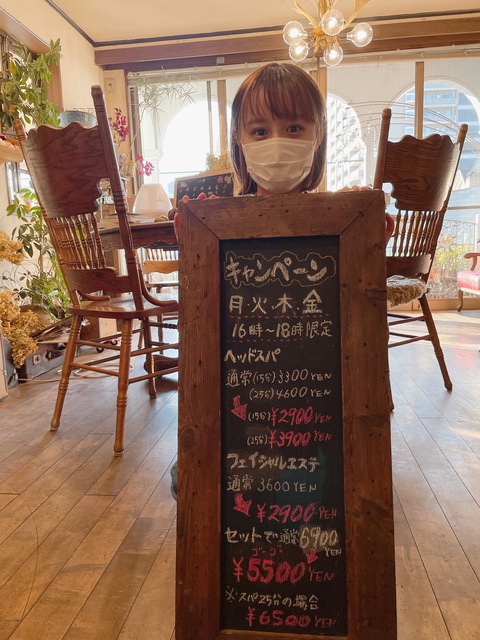 キャンペーン
月火・木・金
16時～18時限定
ヘッドスパ
通常(15分)3300YEN
(25分)4600YEN
(15分)¥2900YEN
(25分)¥3900YEN
フェイシャルエステ
通常3600YEN
¥2900YEN
セットで通常6900YEN
¥5500YEN
※スパ25分の場合
¥6500YEN